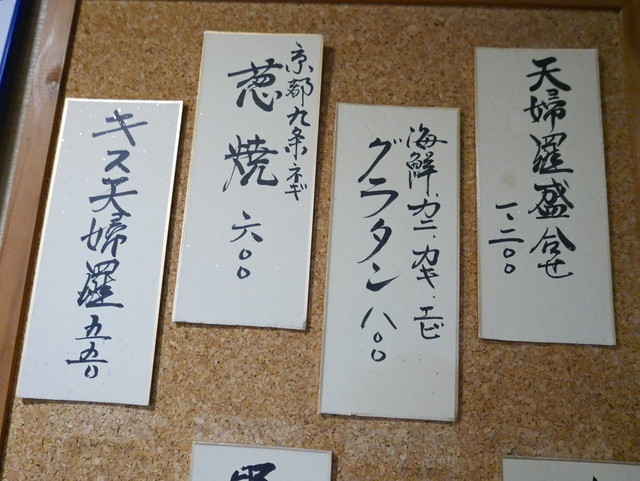 天婦羅盛合せ
一、二〇〇
海鮮・カニ・カキ・エビ
グラタン 八〇〇
京都九条ネギ
葱焼 六〇〇
キス天婦羅 五五〇